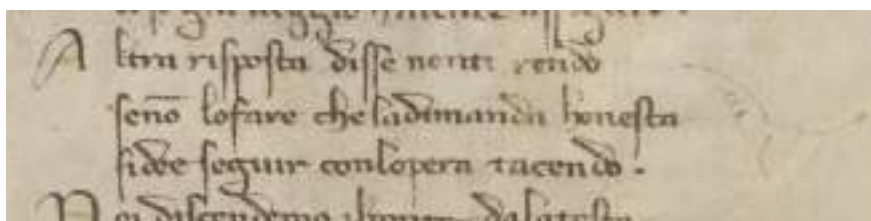 A ltra risposta disse nonti rendo
seno lofare che ladimanda honesta
sidee seguir conlopera tacendo.
N oi discendemo ilponte dalatesta